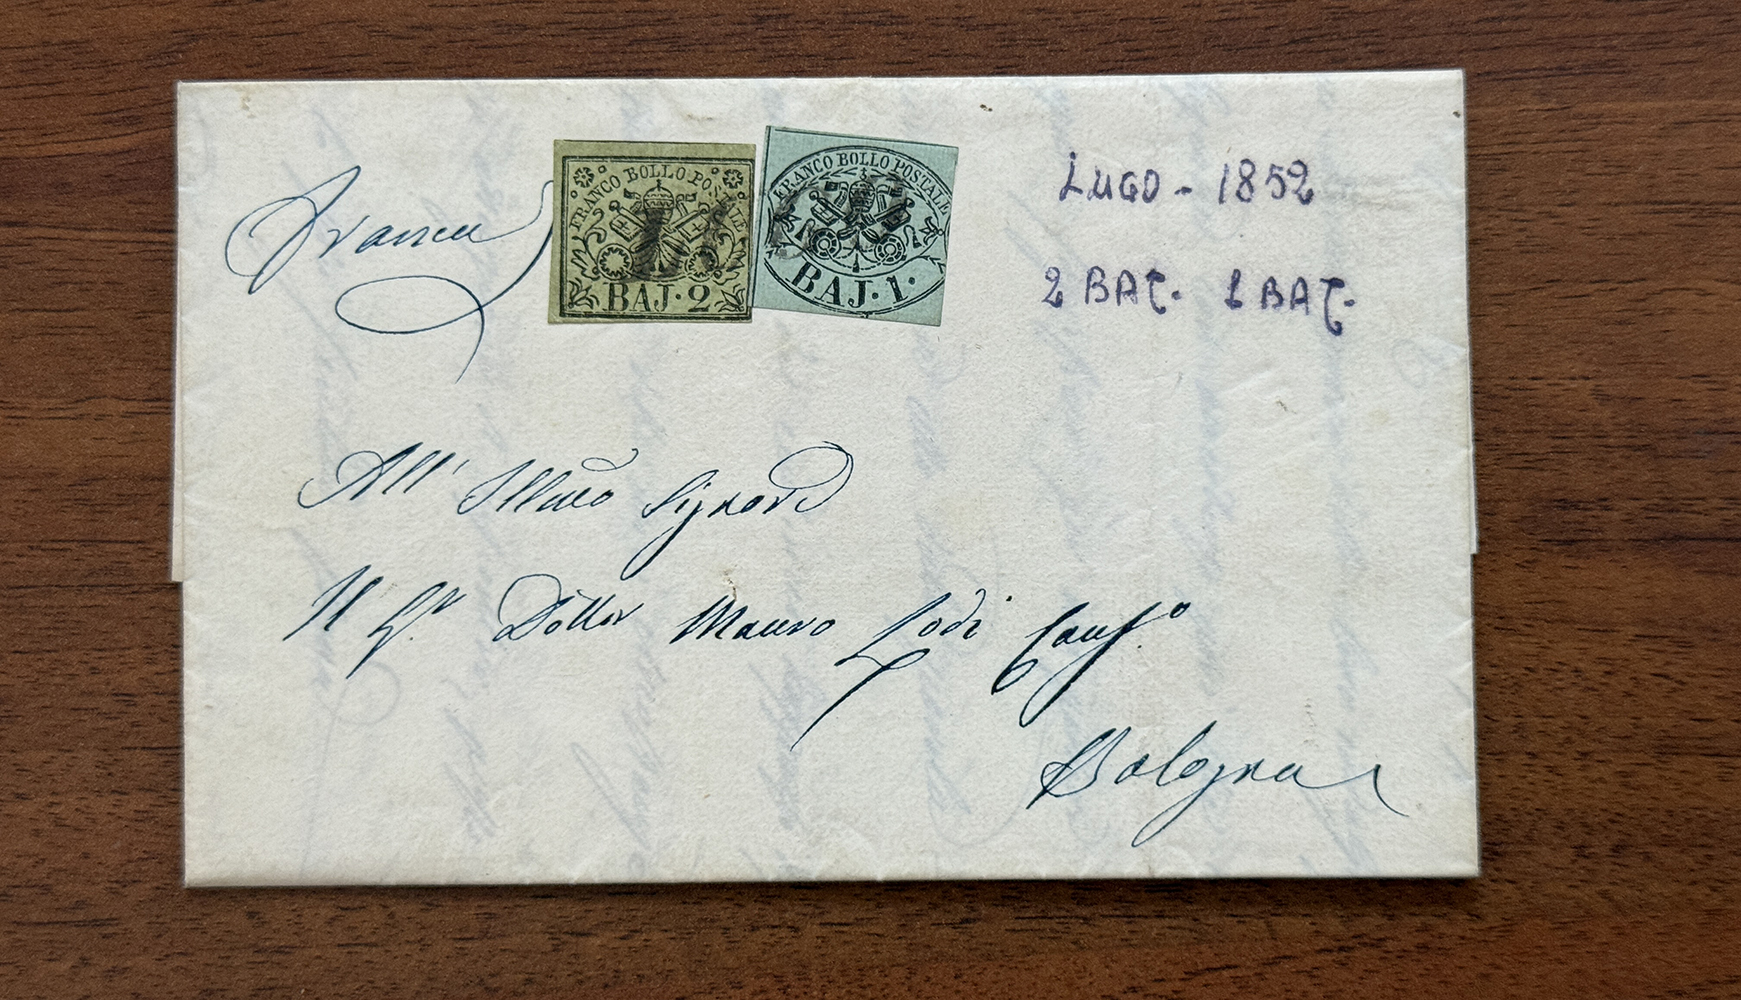 Franca
FRANCO BOLLO POSTALE
BAJ·2
FRANCO BOLLO POSTALE
BAJ·1·
LUGO - 1852
2 BAJ. 1 BAJ.
All' Illmo Signore
Il Sr Dottor Mauro Lodi
Bologna